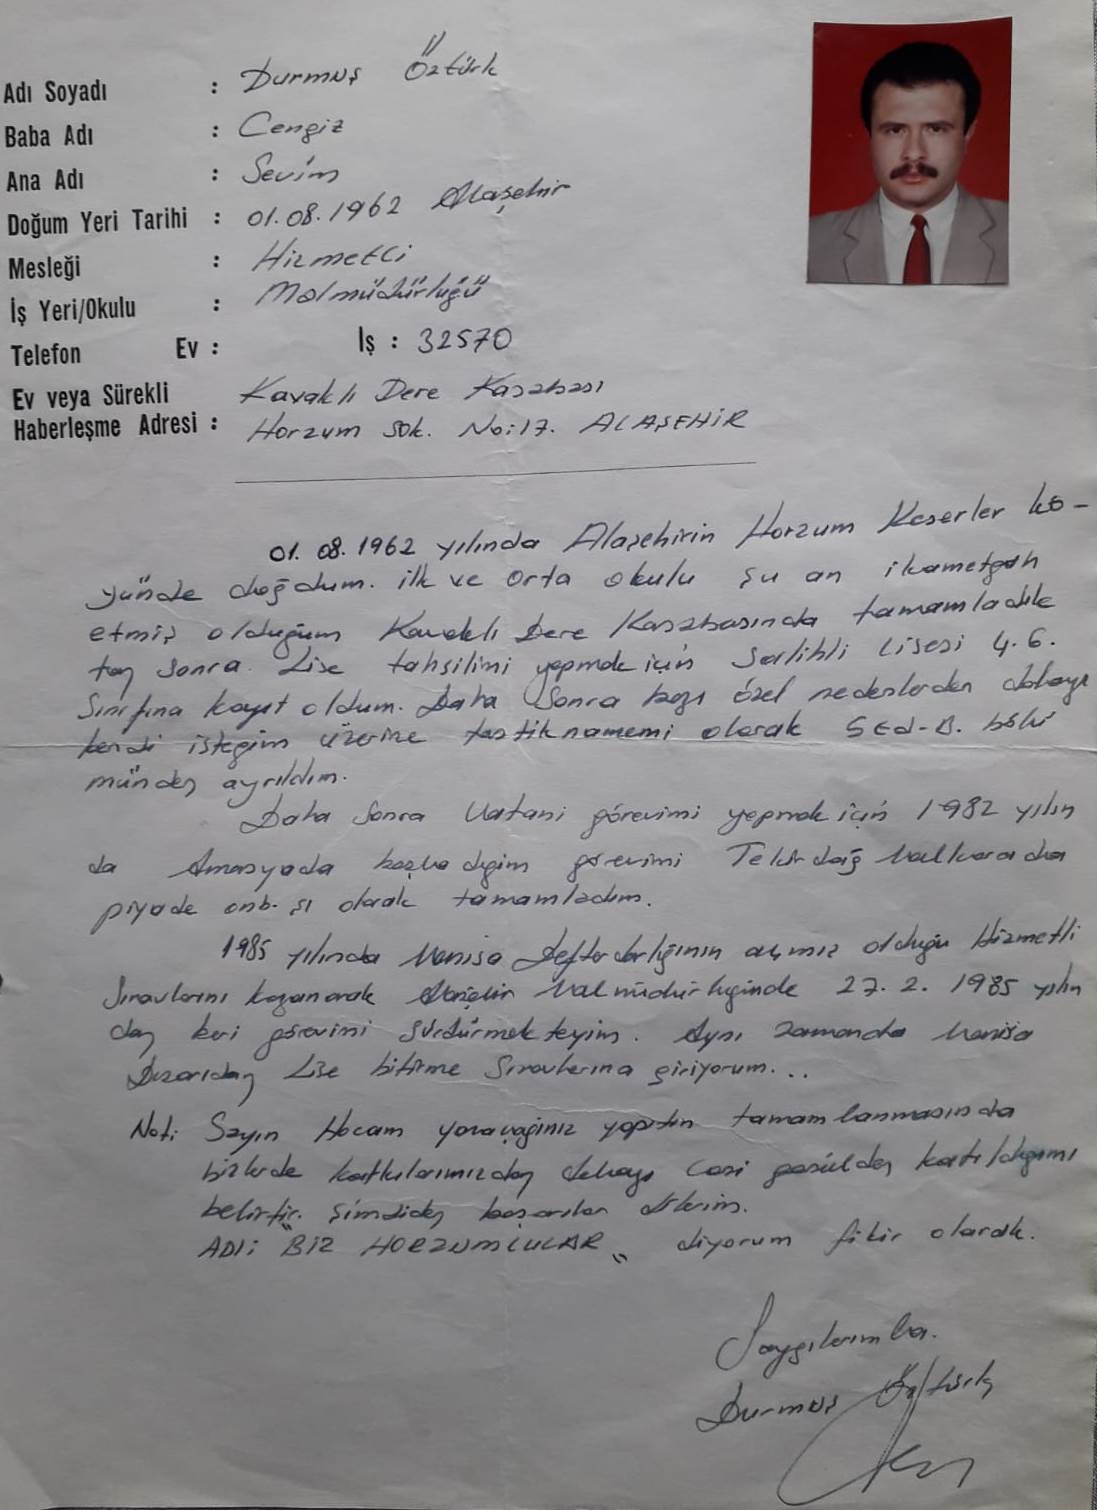 Adı Soyadı : Durmuş Öztürk
Baba Adı : Cengiz
Ana Adı : Sevim
Doğum Yeri Tarihi : 01.08.1962 Alaşehir
Mesleği : Hizmetli
İş Yeri/Okulu : Malmüdürlüğü
Telefon Ev : İş : 32570
Ev veya Sürekli Kavaklı Dere Kasabası
Haberleşme Adresi : Horzum Sok. No:17. ALAŞEHİR
01.08.1962 yılında Alaşehirin Horzum Keserler kö-
yünde doğdum. ilk ve orta okulu şu an ikametgah
etmiş olduğum Kavaklı Dere Kasabasında tamamladık
tan sonra. Lise tahsilimi yapmak için Salihli Lisesi 4.6.
Sınıfına kayıt oldum. Daha Sonra bazı özel nedenlerden dolayı
kendi isteğim üzerine tastiknamemi olarak SEd-B. bölü
münden ayrıldım.
Daha Sonra Vatani görevimi yapmak için 1982 yılın
da Amasyada başladığım görevimi Tekirdağ Malkarada
piyade onb. şı olarak tamamladım.
1985 yılında Manisa Defterdarlığının açmız olduğu Hizmetli
Sınavlarını kazanarak Alaşehir Malmüdürlüğünde 27.2.1985 yılın
dan beri görevimi sürdürmekteyim. Aynı zamanda Manisa
Dışarıdan Lise bitirme Sınavlarına giriyorum...
Not: Sayın Hocam yapıtın tamamlanmasında
bizlerde katkılarımızdan dolayı katıldığımı
belirtir. Şimdiden başarılar dilerim.
ADI: "BİZ HORZUMLULAR" diyorum fikir olarak.
Saygılarımla.
Durmuş Öztürk